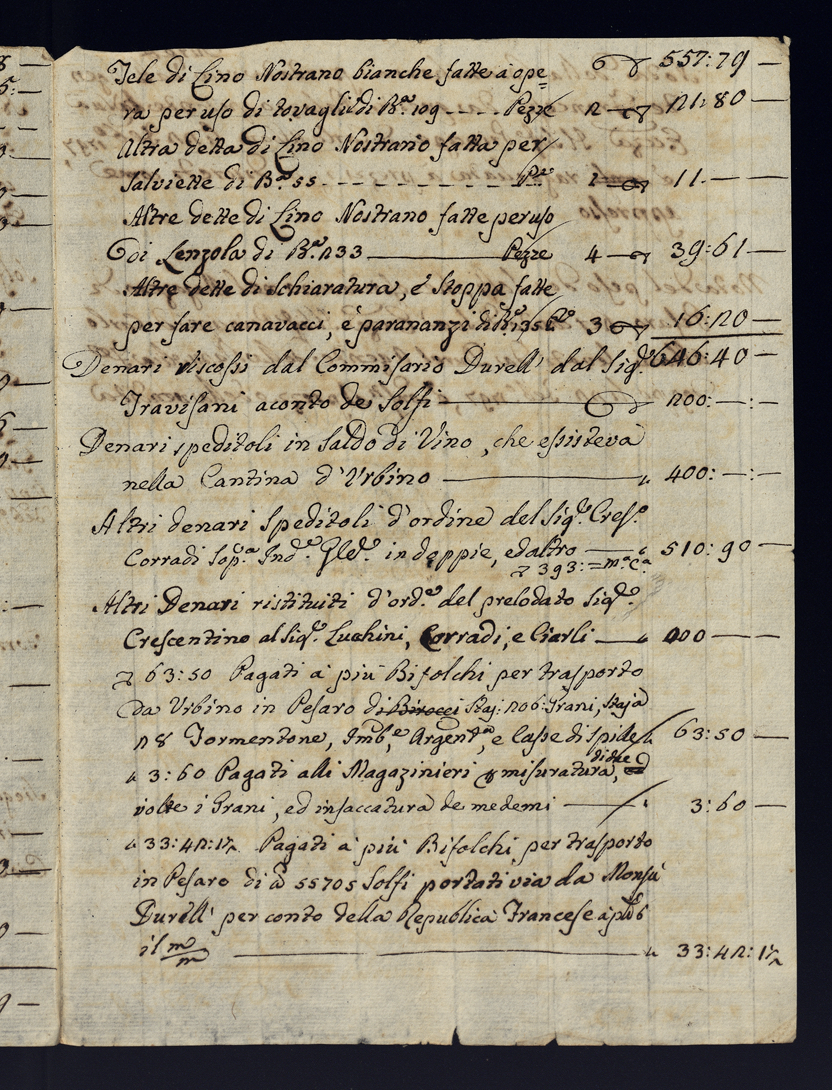 Tele di Lino Nostrano bianche fatte à ope= 6 557:79 —
ra per uso di tovaglie di B.e 109 ---- Pezze 2 — 21:80 —
Altra detta di Lino Nostrano fatta per
Salviette di B.e 55 - - - - - - - - P.e 1 — 11. — —
Altre dette di Lino Nostrano fatte per uso
di Lenzola di B.e 233 — Pezze 4 — 39:61 —
Altre dette di Schiaratura, e' Stoppa fatte
per fare canavacci, e' parananzi di B.e 135 3 — 16:20 —
Denari riscossi dal Commissario Durell' dal Sig.r 646:40 —
Travisani aconto de Solfi — 200:—:—
Denari speditoli in Saldo di Vino, che essisteva
nella Cantina d'Urbino — " 400:—:—
Altri denari Speditoli d'ordine del Sig.r Cres.o
Corradi Sop.a Ind.e Gle.e in doppie, ed altro — " 510:90 —
393:=
Altri Denari ristituiti d'ord.e del prelodato Sig.r
Crescentino al Sig.r Luchini, Corradi, e Ciarli — " 200 — —
63:50 Pagati a' più Bifolchi per trasporto
da Urbino in Pesaro di Birocci Staj: 206: Grani, Staja
28 Formentone, Imb.e, Argent.a, e Casse di spille " 63:50 —
" 3:60 Pagati alli Magazinieri p misuratura, di due
volte i Grani, ed insaccatura de medemi — " 3:60 —
" 33:42:1/2 Pagati a' più Bifolchi per trasporto
in Pesaro di 55705 Solfi portati via da Monsù
Durell' per conto della Republica Francese à p 6
il m/m — " 33:42:1/2